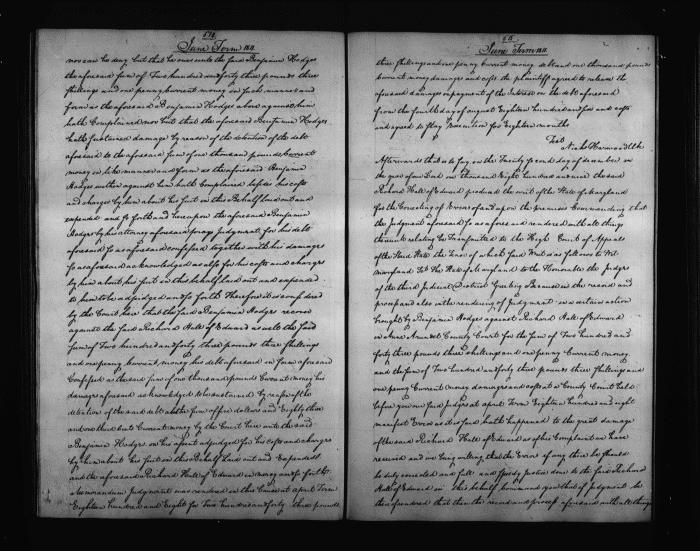 514
June Term 1811.
nor can he deny but that he owes unto the said Benjamin Hodges
the aforesaid sum of Two hundred and forty three pounds three
shillings and one penny current money in such manner and
form as the aforesaid Benjamin Hodges above against him
hath Complained nor but that the aforesaid Benjamin Hodges
hath sustained damage by reason of the detention of the debt
aforesaid to the aforesaid sum of one thousand pounds Current
money in like manner and form as the aforesaid Benjamin
Hodges above against him hath Complained besides his costs
and charges by him about his suit in this Behalf laid out and
expended and so forth and hereupon the aforesaid Benjamin
Hodges by his attorney aforesaid prays Judgment for his debt
aforesaid so as aforesaid confessed together with his damages
so as aforesaid acknowledged as also for his costs and charges
by him about his suit in this behalf laid out and expended
to him to be adjudged and so forth Therefore it is considered
by the Court here that the said Benjamin Hodges recover
against the said Richard Hall of Edward as well the said
sum of Two hundred and forty three pounds three shillings
and one penny Current money his debt aforesaid in form aforesaid
Confessed as the said sum of one thousand pounds Current money his
damages aforesaid acknowledged to be sustained by reason of the
detention of the said debt as the sum of five dollars and Eighty three
and one third cents Current money by the Court here unto the said
Benjamin Hodges on his assent adjudged for his costs and charges
by him about his suit in this Behalf laid out and Expended
and the aforesaid Richard Hall of Edward in mercy and so forth
Memorandum Judgment was rendered in this Cause at april Term
Eighteen hundred and Eight for Two hundred and forty three pounds
515
June Term 1811.
three shillings and one penny Current money debt and one thousand pounds
Current money damages and costs the plaintiff agreed to release the
aforesaid damages on payment of the Interest on the debt aforesaid
from the fourth day of august Eighteen hundred and six and costs
and agreed to stay Execution for Eighteen months
Test
Nichs Harwood Clk
Afterwards that is to say, on the Twenty second day of december in
the year of our Lord one thousand Eight hundred and nine the said
Richard Hall of Edward produced the writ of the State of Maryland
for the Correcting of Errors of and upon the premises Commanding that
the Judgment aforesaid so as aforesaid rendered with all things
thereunto relating be Transmitted to the High Court of Appeals
of the said State the Tenor of which said Writ is as follows to Wit
Maryland Sct The State of Maryland to the Honourable the Judges
of the third Judicial District Greeting Because in the record and
process and also in the rendering of Judgment in a certain action
brought by Benjamin Hodges against Richard Hall of Edward
in Anne Arundel County Court for the sum of Two hundred and
forty three pounds three shillings and one penny Current money
and the sum of Two hundred and forty three pounds three shillings and
one penny Current money damages and costs at a County Court held
before you our said Judges at april Term Eighteen hundred and eight
manifest Error as it is said hath happened to the great damage
of the said Richard Hall of Edward as of his Complaint we have
received and we being willing that the Error if any there be should
be duly corrected and full and speedy Justice done to the said Richard
Hall of Edward in this behalf command you that if Judgment be
thereof rendered that then the record and process aforesaid with all things